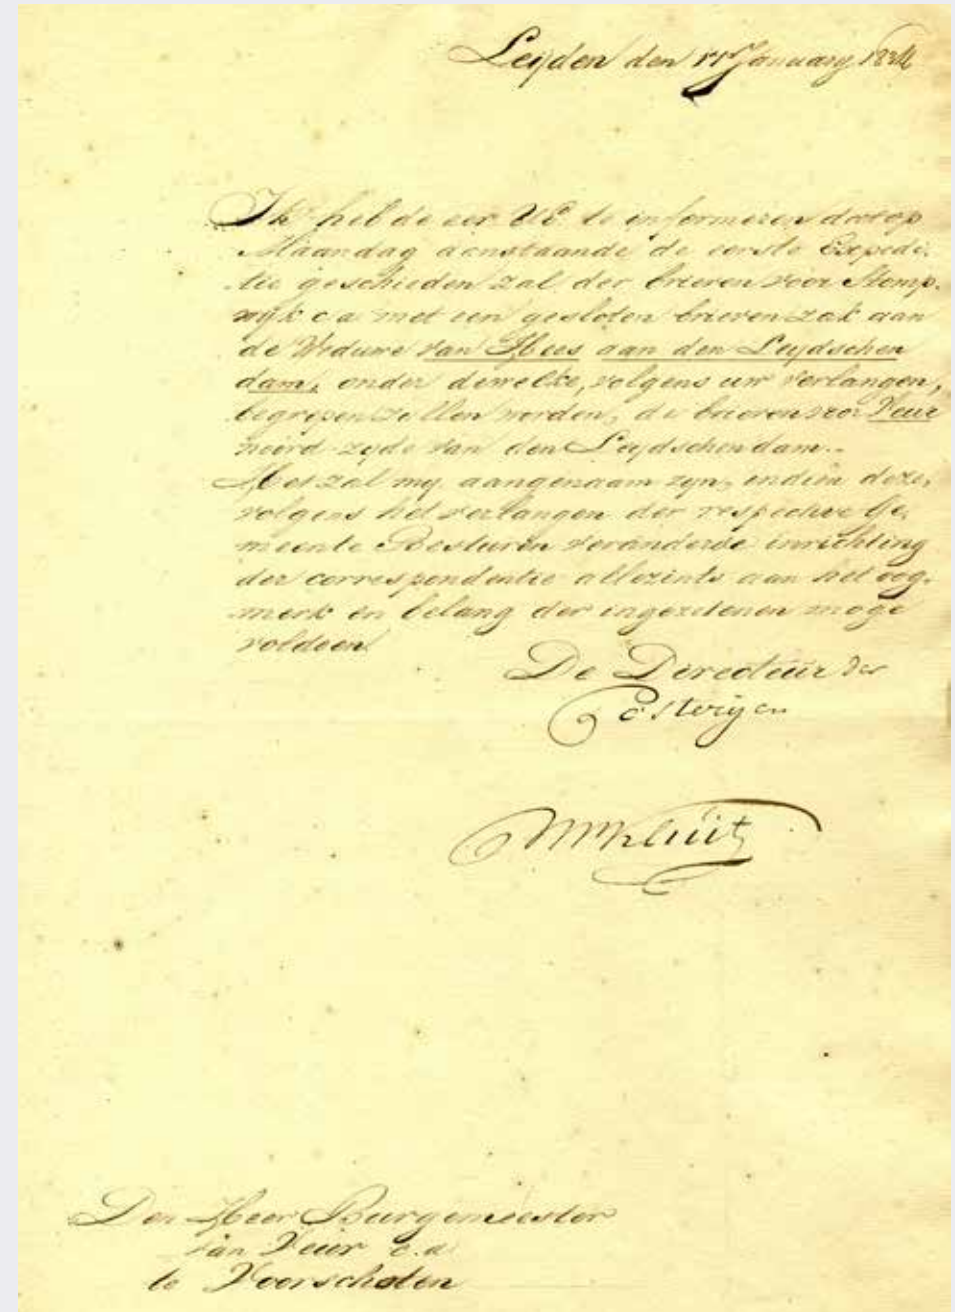 Leyden den 11 January 18
Ik heb de eer UE te informeren dat op
Maandag aanstaande de eerste Expedi-
tie geschieden zal der brieven voor Stomp-
wijk c.a. met een gesloten brieven zak aan
de Weduwe van Hees aan den Leydschen
dam, onder dewelke, volgens uw verlangen,
begrepen zullen worden, de brieven voor Veur
noord-zyde van den Leydschendam.
Het zal my aangenaam zyn, indien deze,
volgens het verlangen der respective Ge-
meente Besturen veranderde inrichting
der correspondentie allezints aan het oog-
merk en belang der ingezetenen moge
voldoen.
De Directeur der
Posteryen
Kluit
Den Heer Burgemeester
van Veur c.a.
te Voorschoten